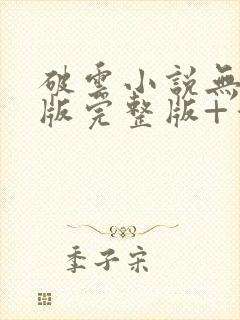 破雲小說無
版完整版+
季子宋